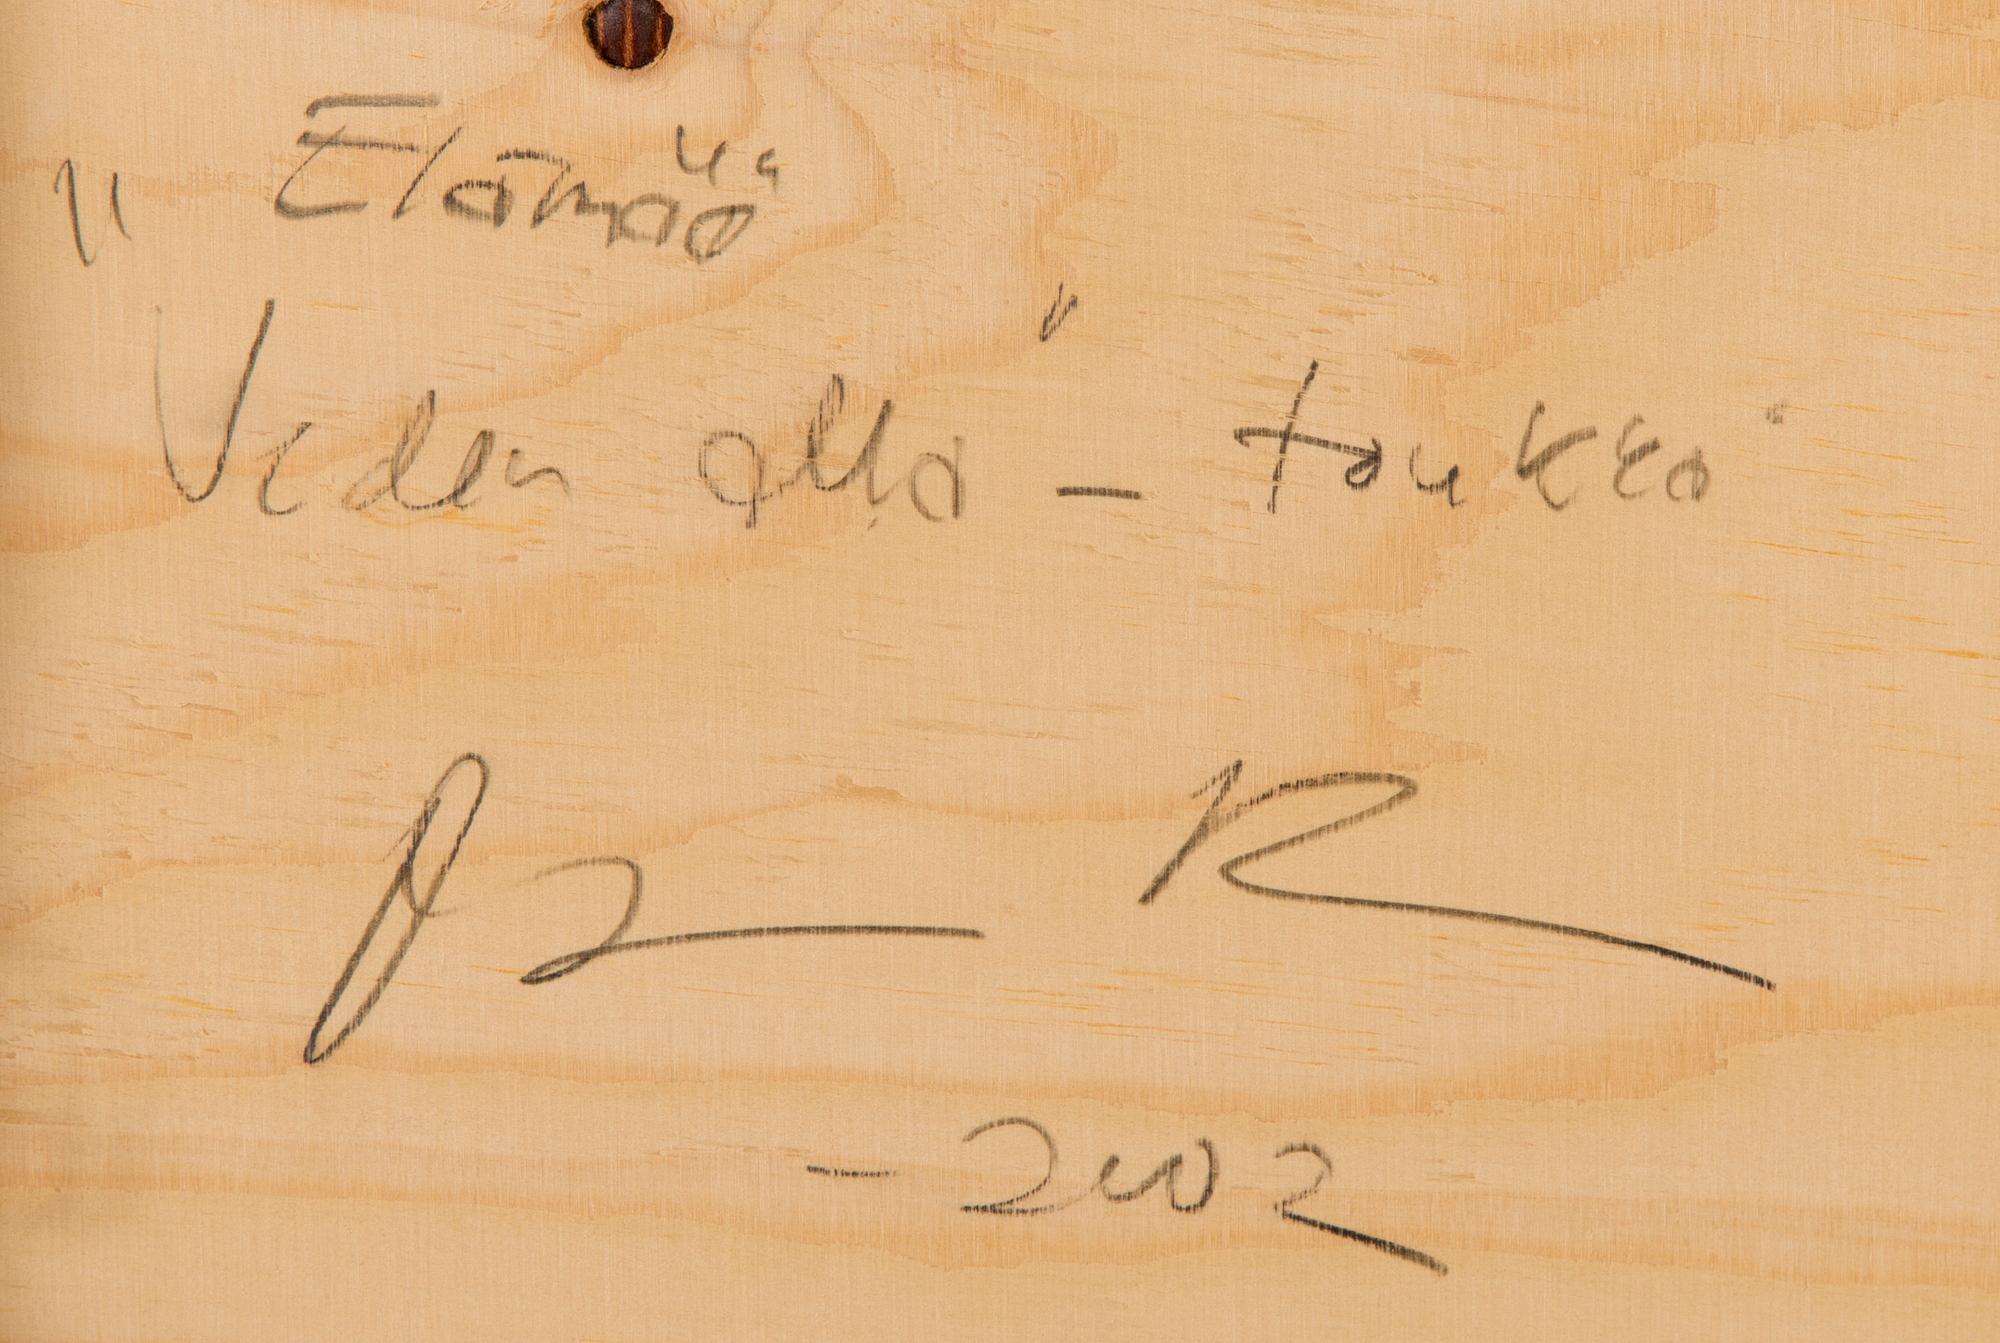 „ Elämää
Veden alla" - toukka"
- 2002